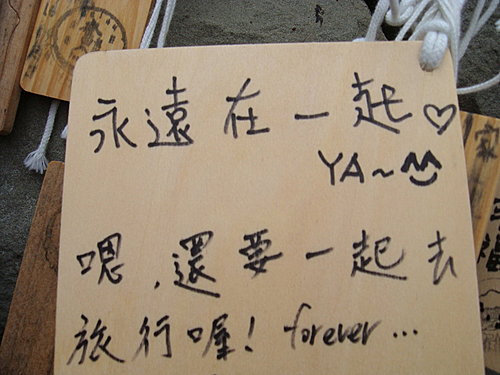 永遠在一起♡
YA~
嗯,還要一起去
旅行喔! forever...